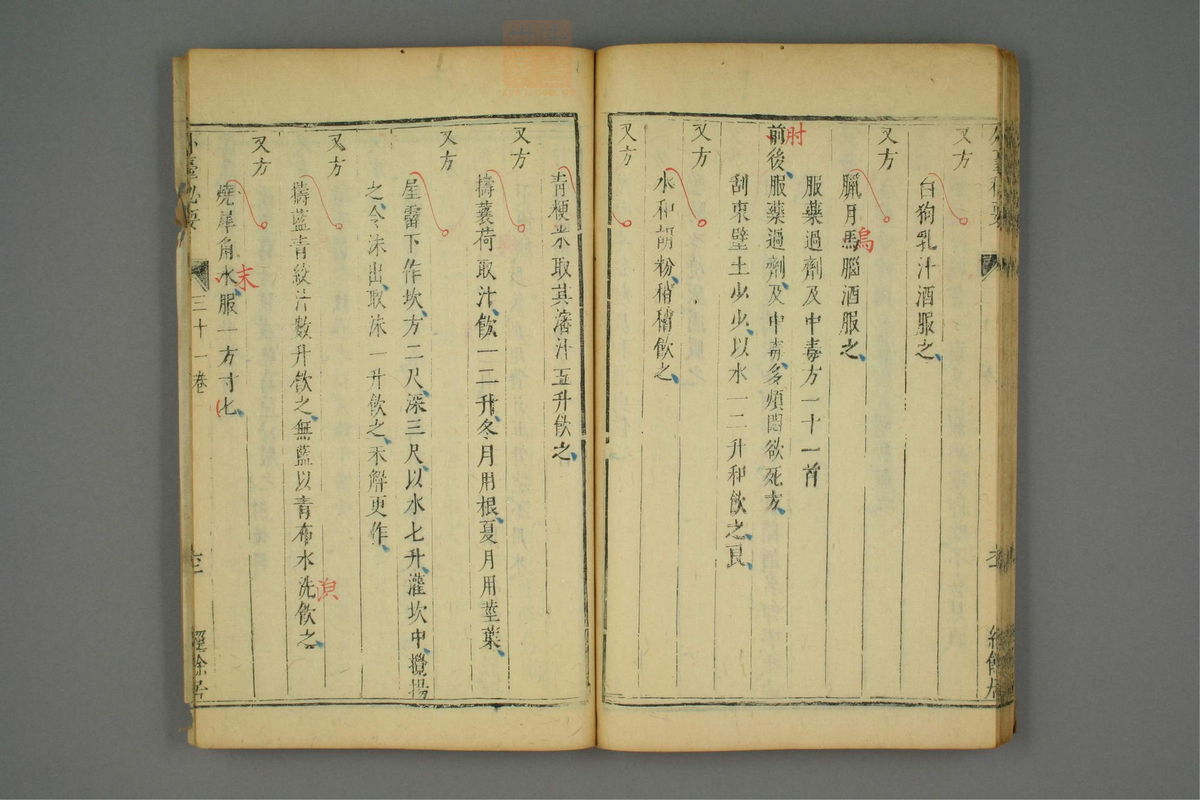 又方
白狗乳汁酒服之
又方
臘月馬腦酒服之
烏
服藥過劑及中毒方一十一首
肘
前後服藥過劑及中毒多煩悶欲死方
刮東壁土少少以水一二升和飲之良
又方
水和胡粉稍稍飲之
又方
青粳米取其瀋汁五升飲之
又方
擣蘘荷取汁飲一二升冬月用根夏月用莖葉
又方
屋霤下作坎方二尺深三尺以水七升灌坎中攪揚
之令沫出取沫一升飲之未解更作
又方
擣藍青絞汁數升飲之無藍以青布水洗飲之
又方
燒犀角水服一方寸匕
末
外臺秘要
三十一卷
經餘居